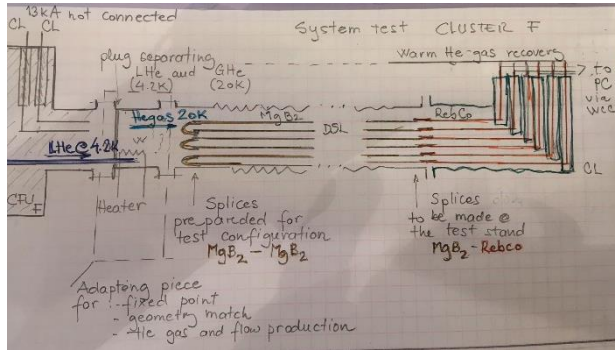 13kA not connected
CL CL
System test CLUSTER F
plug separating
LHe and GHe
(4.2K) (20K)
Warm He-gas recovery
to
PC
via
WCC
Hegas 20K
MgB2
DSL
RebCo
LHe@4.2K
W
CL
CFU
F
Heater
Splices
preparded for
test configuration
MgB2 - MgB2
Splices
to be made @
the test stand
MgB2 - Rebco
Adapting piece
for :- fixed point
- geometry match
- He gas and flow production